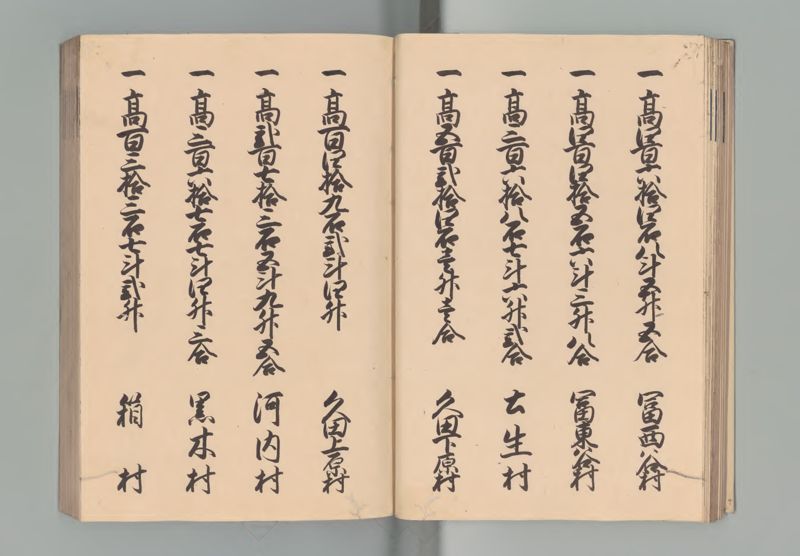 一 高四百六拾四石八斗五升五合 冨西谷村
一 高四百四拾五石六斗三升八合 冨東谷村
一 高三百六拾八石七斗六升弐合 土生村
一 高五百弐拾四石壱升壱合 久田下原村
一 高百四拾九石弐斗四升 久田上原村
一 高弐百七拾三石五斗九升五合 河内村
一 高三百六拾七石七斗四升三合 黒木村
一 高百三拾三石七斗弐升 村